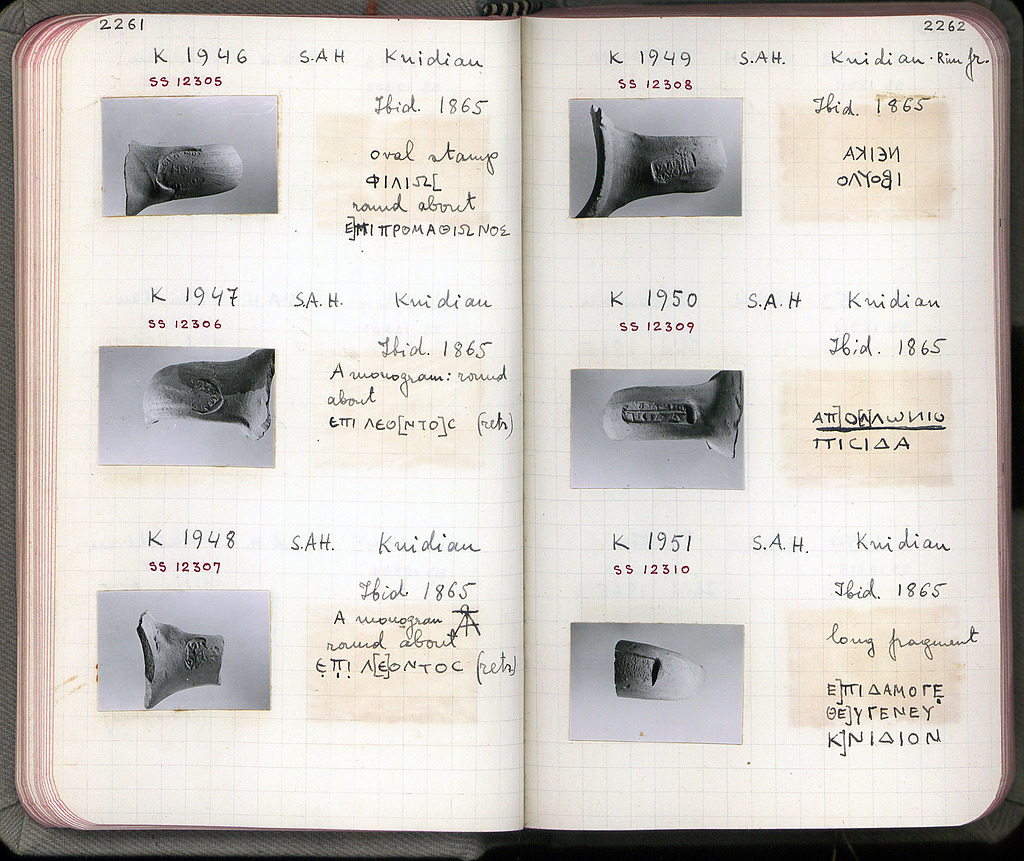 2261
K 1946 S.A.H Knidian
SS 12305
Ibid. 1865
oval stamp
ΦΙΛΙΩ[
round about
Ε]ΠΙ ΠΡΟΜΑΘΙΩΝΟΣ
K 1947 S.A.H. Knidian
SS 12306
Ibid. 1865
A monogram: round
about
ΕΠΙ ΛΕΟ[ΝΤΟ]C (retr)
K 1948 S.A.H. Knidian
SS 12307
Ibid. 1865
A monogram
round about
Ε̣Π̣Ι̣ Λ[Ε]ΟΝΤΟC (retr)
2262
K 1949 S.A.H. Knidian · Rim fr.
SS 12308
Ibid. 1865
ΝΕΙΚΑ
ΙΒΟΥΛΟ
K 1950 S.A.H Knidian
SS 12309
Ibid. 1865
ΑΠ]ΟΛΛΩΝΙΟ
ΠΙCΙΔΑ
K 1951 S.A.H. Knidian
SS 12310
Ibid. 1865
long fragment
Ε]ΠΙ ΔΑΜΟΓΕ
ΘΕ]ΥΓΕΝΕΥ
Κ]ΝΙΔΙΟΝ